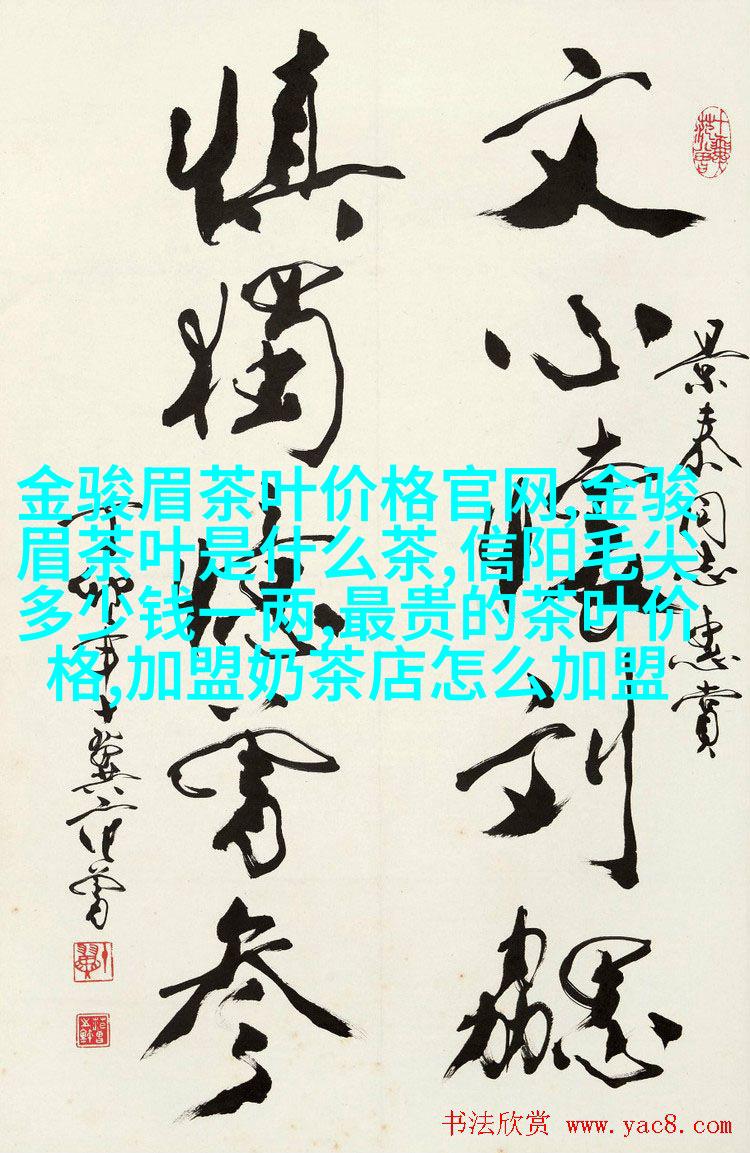 景泰同志惠賞
文心懷刘勰
慎獨曾参
丁卯年十翼范曾
金骏眉茶叶价格官网,金骏
眉茶叶是什么茶,信阳毛尖
多少钱一两,最贵的茶叶价
格,加盟奶茶店怎么加盟
书法欣赏 www.yac8.com